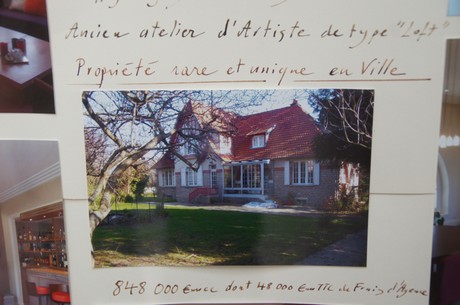 Ancien atelier d'Artiste de type "Loft"
Propriété rare et unique en Ville
848 000 Euros dont 48 000 € TTC de Frais d'Agence